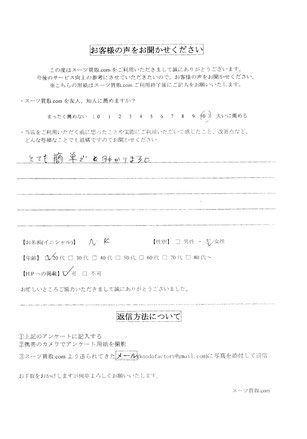 お客様の声をお聞かせください
この度はスーツ買取.comをご利用いただきまして誠にありがとうございます。
今後のサービス向上の参考にさせていただきたいので、お客様の声をお聞かせください。
※こちらの用紙はスーツ買取.comご利用終了後にご記入をお願いいたします。
・スーツ買取.comを友人、知人に薦めますか?
まったく薦めない (0 1 2 3 4 5 6 7 8 9 10) 大いに薦める
・当店をご利用いただく前に思ったことや実際にご利用いただいて感じたこと、改善点など、
どんな些細なことでも結構ですのでお聞かせください
とても簡単
【お名前(イニシャル)】 N K 【性別】 □ 男性 ・ 女性
【年齢】 20代 □ 30代 □ 40代 □ 50代 □ 60代 □ 70代 □ 80代～
【HPへの掲載】 可 □ 不可
お忙しいところご協力いただきまして誠にありがとうございました。
返信方法について
①上記のアンケートに記入する
②携帯のカメラでアンケート用紙を撮影
③スーツ買取.comより送られてきたメール(knodefactory@gmail.com)に写真を添付して返信
お手数をおかけしますが何卒よろしくお願いいたします。
スーツ買取.com